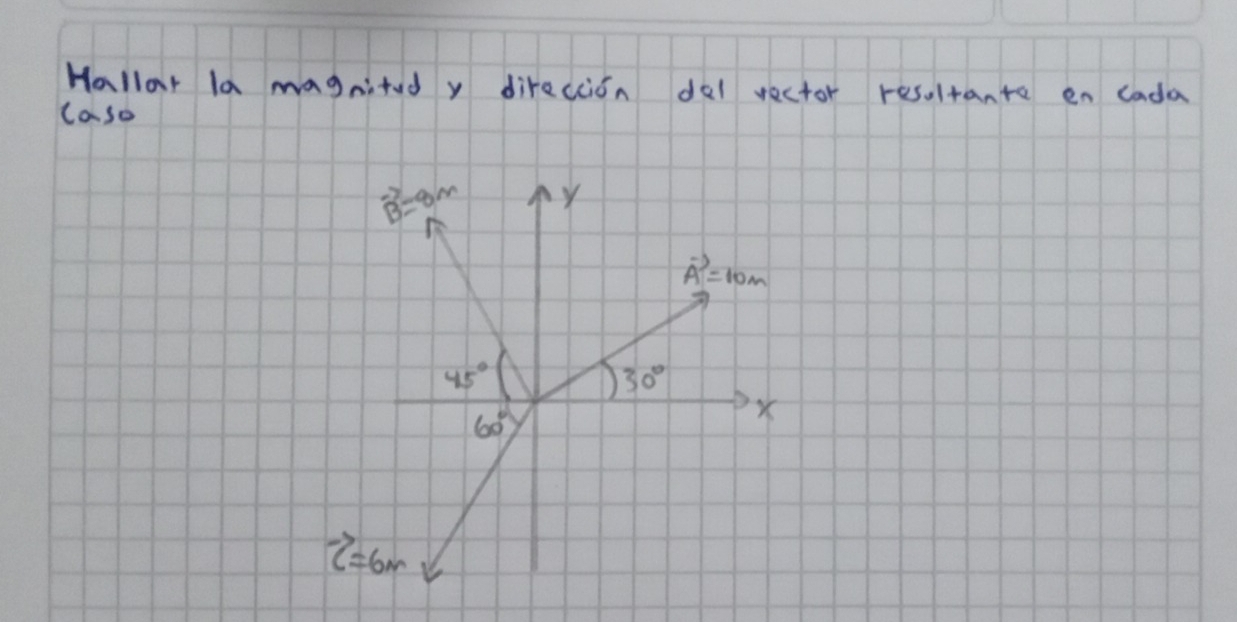 Hallar la magnitud y dirección del vector resultante en cada
caso
B⃗=8m
y
A⃗=10m
45°
30°
x
60°
C⃗=6m